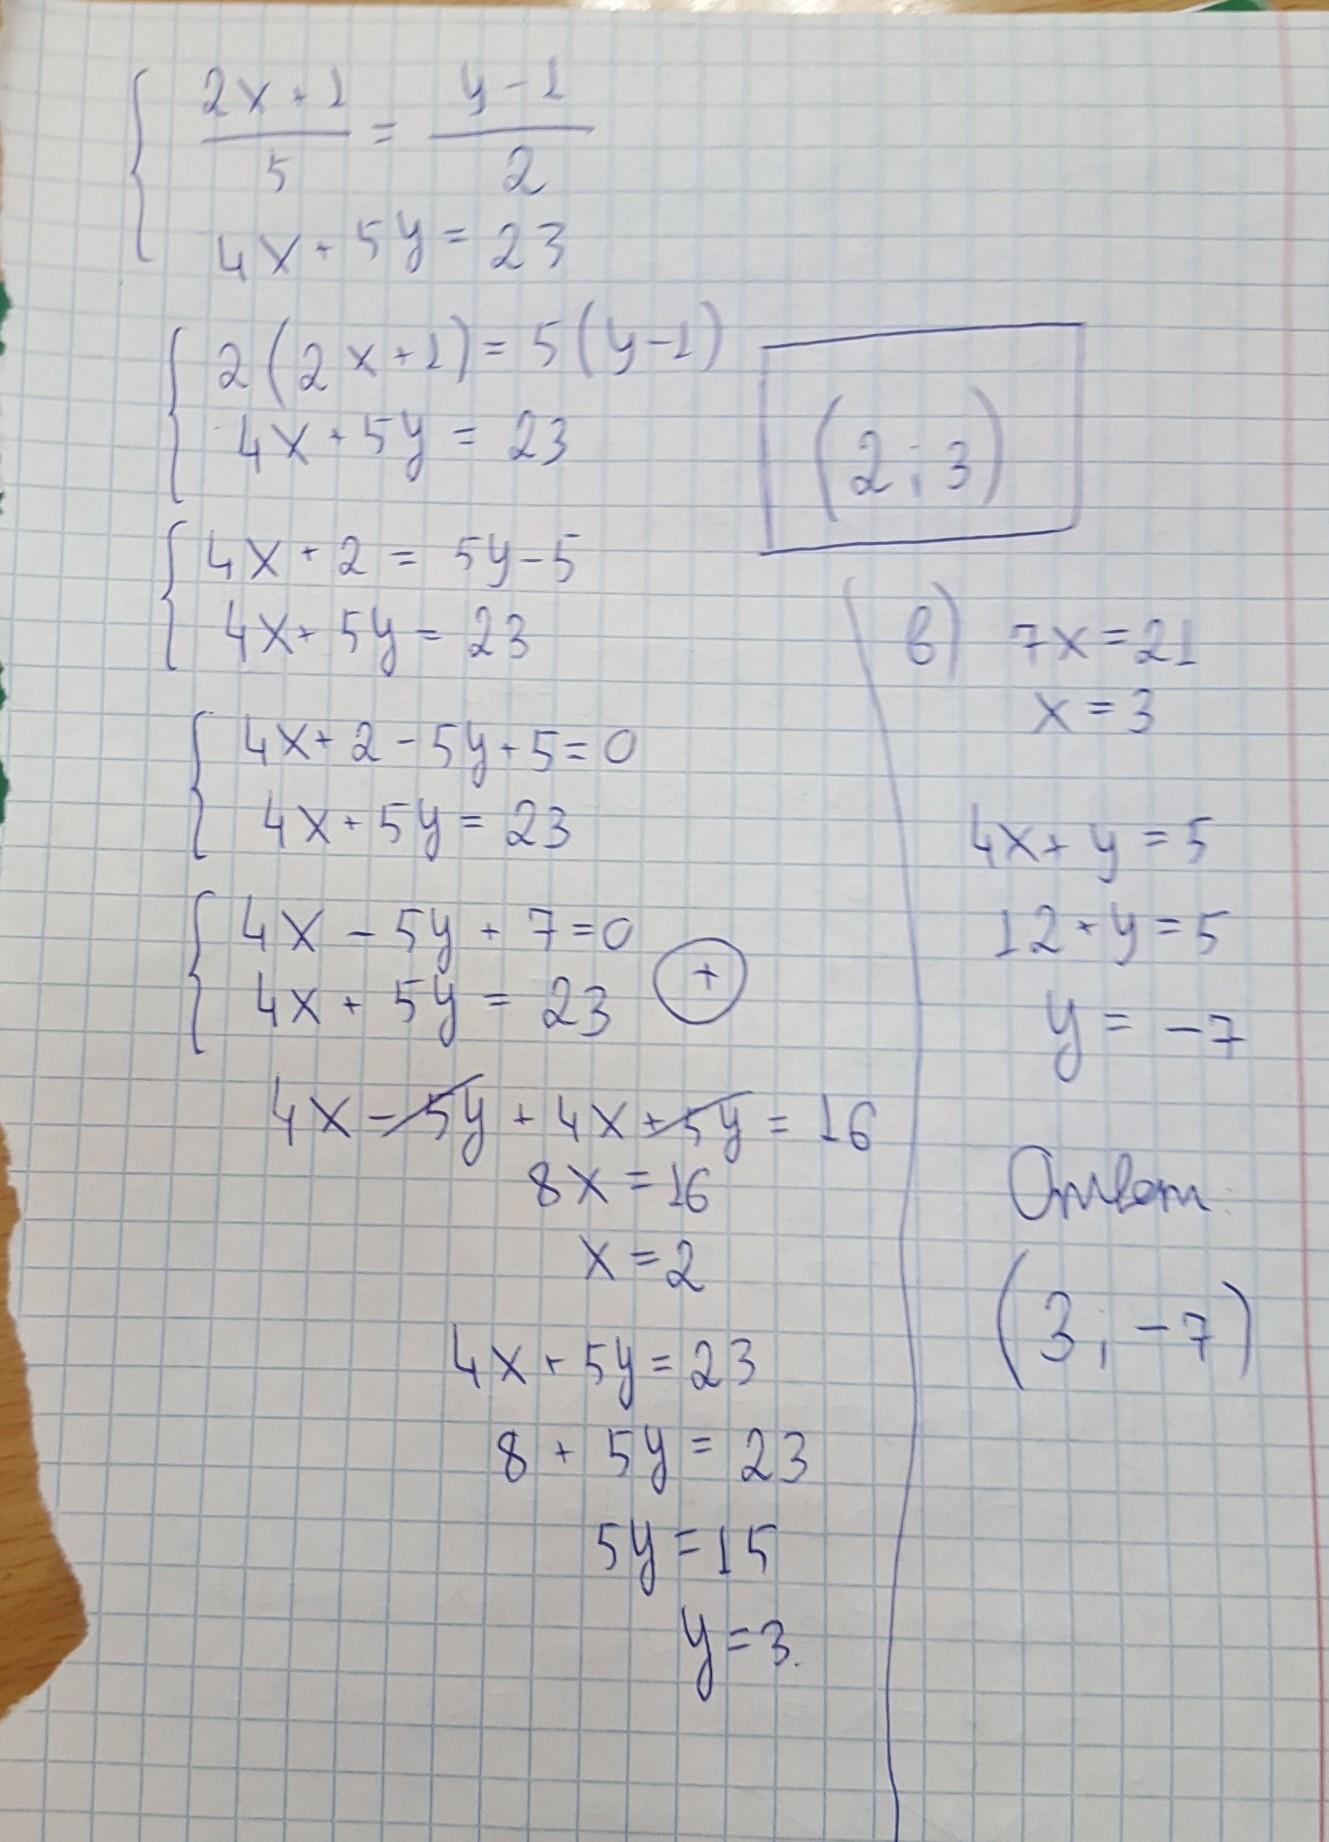 2x+1/5 = y-1/2
4x+5y=23
2(2x+1)=5(y-1)
4x+5y=23
4x+2=5y-5
4x+5y=23
4x+2-5y+5=0
4x+5y=23
4x-5y+7=0
4x+5y=23
+
4x-5y+4x+5y=16
8x=16
x=2
4x+5y=23
8+5y=23
5y=15
y=3.
(2;3)
в) 7x=21
x=3
4x+y=5
12+y=5
y=-7
Ответ:
(3;-7)